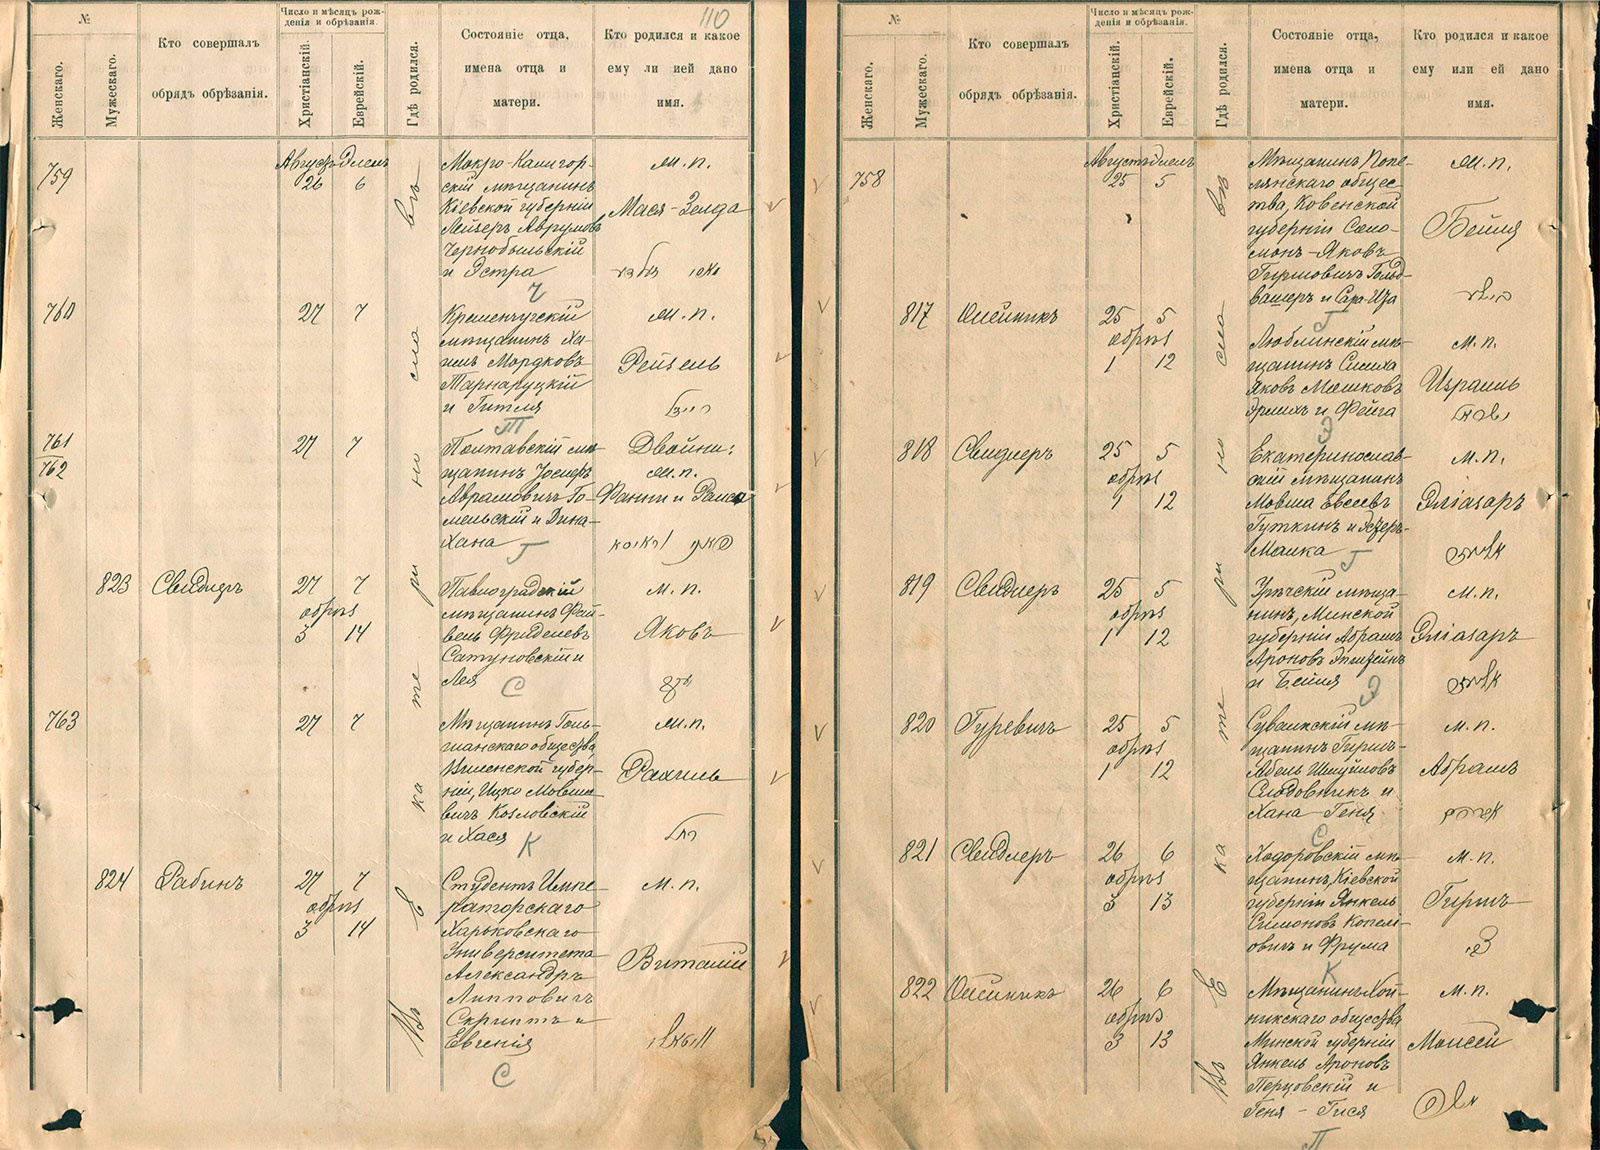 110
№
Женскаго.
Мужескаго.
Кто совершалъ
обрядъ обрѣзанія.
Число и мѣсяцъ рож-
денія и обрѣзанія.
Христіанскій.
Еврейскій.
Гдѣ родился.
Состояніе отца,
имена отца и
матери.
Кто родился и какое
ему ли ией дано
имя.
Въ Екатеринославѣ
759
Августъ
26 6
Мокро-Калигор-
скій мѣщанинъ
Кіевской губерніи
Лейзеръ Аврумовъ
Чернобыльскій
и Эстра
Ч
м. п.
Мася-Зелда
760
27 7
Кременчугскій
мѣщанинъ Ха-
имъ Мордковъ
Тарнаруцкій
и Гитля
Т
м. п.
Рейзель
761
762
27 7
Полтавскій мѣ-
щанинъ Іосифъ
Аврамовичъ Го-
мельскій и Дина-
Хана
Г
Двойни:
м. п.
Фанни и Раиса
823 Свидлеръ
27 7
обрѣз
3 14
Павлоградскій
мѣщанинъ Фай-
вель Фриделевъ
Сатуновскій и
Лея
С
м. п.
Яковъ
763
27 7
МѣщанинъГоль-
шанскаго общества,
Виленской губер-
ніи, Ицко Мовшо-
вичъ Козловскій
и Хася
К
м. п.
Рахиль
רחל
824 Рабинъ
27 7
обрѣз
3 14
Студентъ Импе-
раторскаго
Харьковскаго
Университета
Александръ
Липповичъ
Скриптъ и
Евгенія
С
м. п.
Виталій
№
Женскаго.
Мужескаго.
Кто совершалъ
обрядъ обрѣзанія.
Число и мѣсяцъ рож-
денія и обрѣзанія.
Христіанскій.
Еврейскій.
Гдѣ родился.
Состояніе отца,
имена отца и
матери.
Кто родился и какое
ему или ей дано
имя.
Въ Екатеринославѣ
758
Августъ
25 5
Мѣщанинъ Попе-
лянскаго общес-
тва, Ковенской
губерніи Соло-
монъ-Яковъ
Гиршовичъ Гольд-
вашеръ и Сара-Ита
Г
м. п.
Бейля
ביילע
817 Олейникъ
25 5
обрѣз
1 12
Люблинскій мѣ-
щанинъ Симха
Яковъ Мошковъ
Эрлихъ и Фейга
Э
м. п.
Израиль
ישראל
818 Свидлеръ
25 5
обрѣз
1 12
Екатеринослав-
скій мѣщанинъ
Мовша Евсеевъ
Гуткинъ и Эстеръ-
Малка
Г
м. п.
Эліазаръ
אליעזר
819 Свидлеръ
25 5
обрѣз
1 12
Урѣчскій мѣща-
нинъ, Минской
губерніи Абрамъ
Ароновъ Эпштейнъ
и Бейля
Э
м. п.
Эліазаръ
אליעזר
820 Гуревичъ
25 5
обрѣз
1 12
Сувалкскій мѣ-
щанинъ Гиршъ-
Абель Шмуйловъ
Слодовникъ и
Хана-Геня
С
м. п.
Абрамъ
אברהם
821 Свидлеръ
26 6
обрѣз
3 13
Ходоровскій мѣ-
щанинъ, Кіевской
губерніи Янкель
Симоновъ Копел-
овичъ и Фрума
К
м. п.
Гиршъ
צבי
822 Олейникъ
26 6
обрѣз
3 13
Мѣщанинъ Хой-
никскаго общества
Минской губерніи
Янкель Ароновъ
Перцовскій и
Геня-Гися
П
м. п.
Моисей
משה